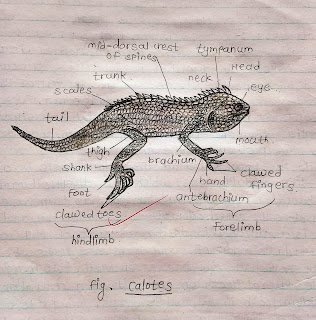 mid-dorsal crest
of spines
tympanum
Head
neck
eye
trunk
scales
tail
mouth
thigh
brachium
shank
clawed
fingers
hand
foot
antebrachium
clawed toes
forelimb
hindlimb
fig. calotes